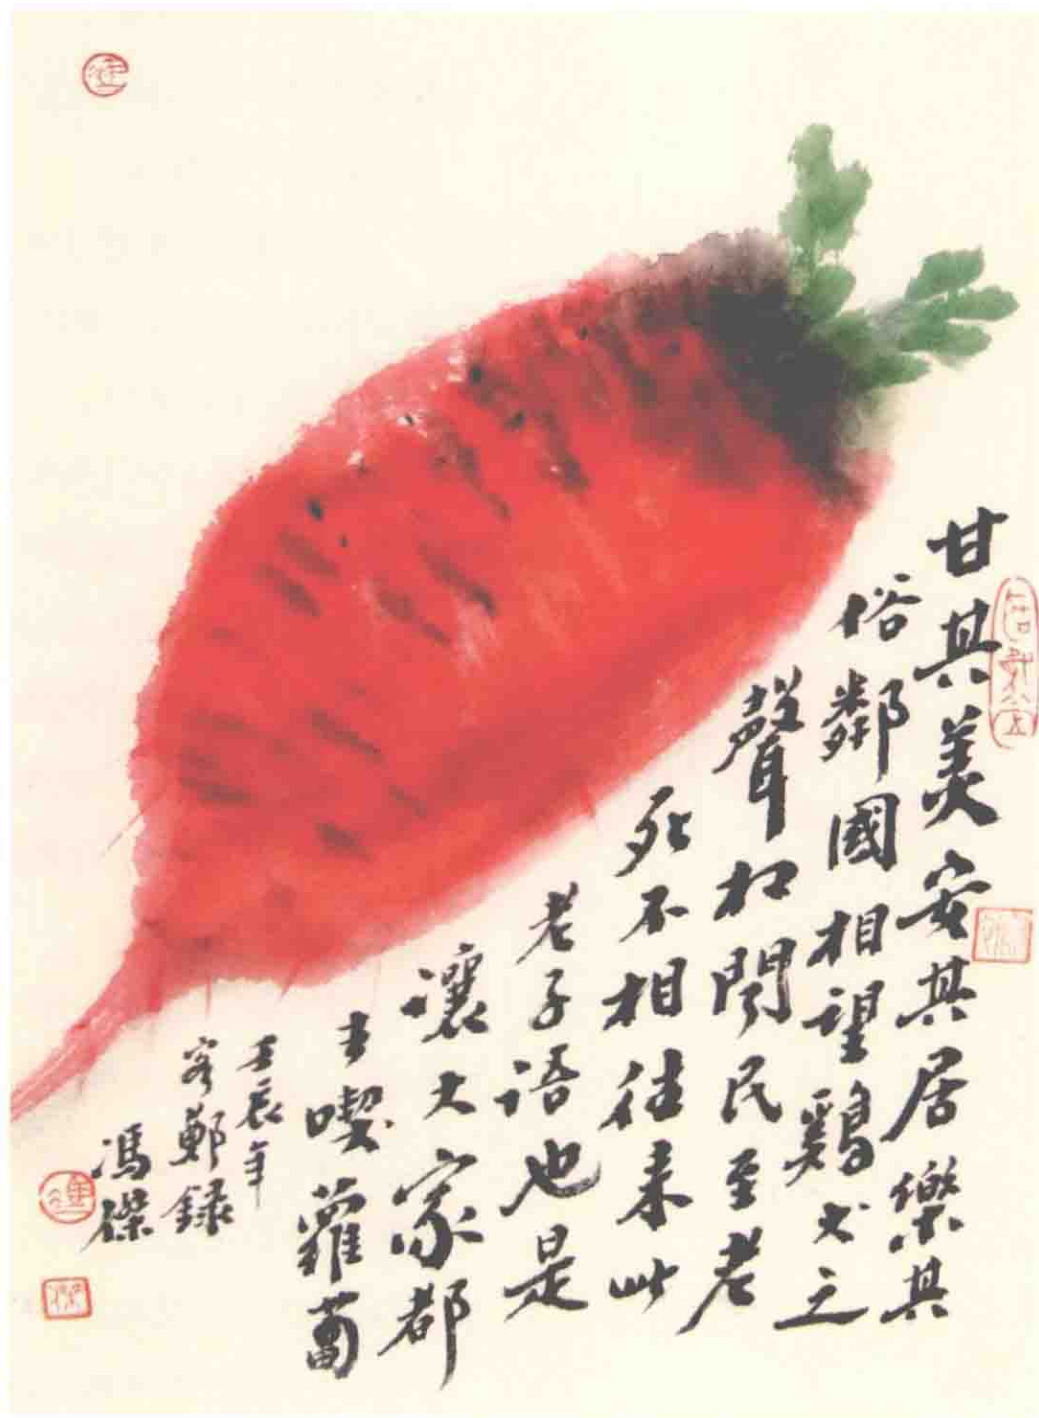 甘其美安其居樂其
俗鄰國相望鷄犬之
聲相聞民至老
死不相往来此
老子語也是
讓大家都
去喫蘿蔔
壬辰年
客鄭録
馮傑